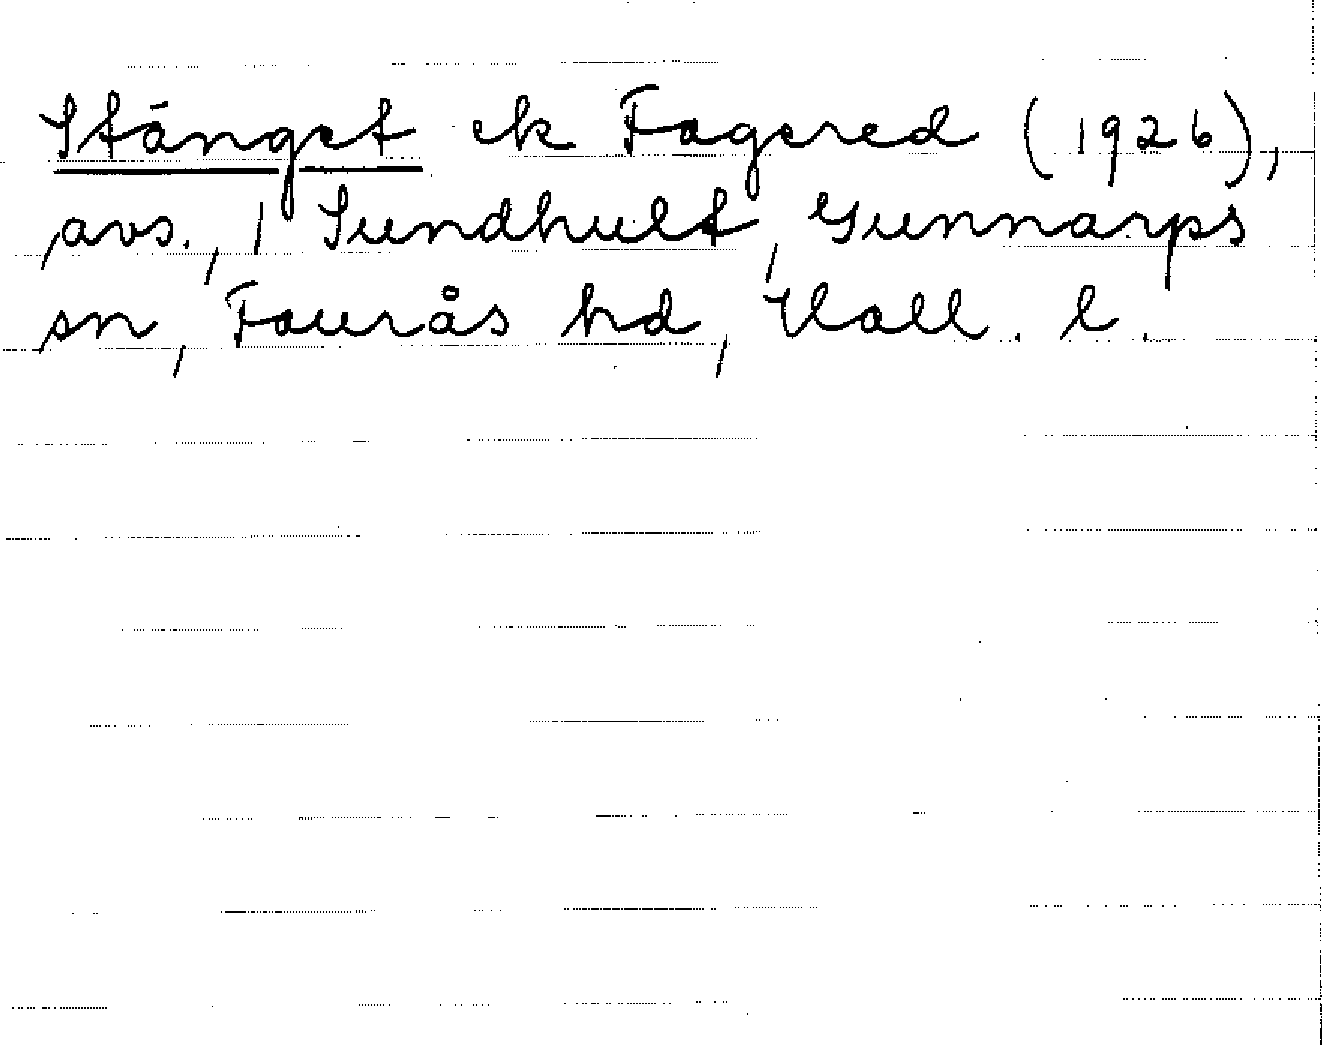 Stänget ek Fagered (1926),
avs., 1 Sundhult, Gunnarps
sn, Faurås hd, Hall. l.